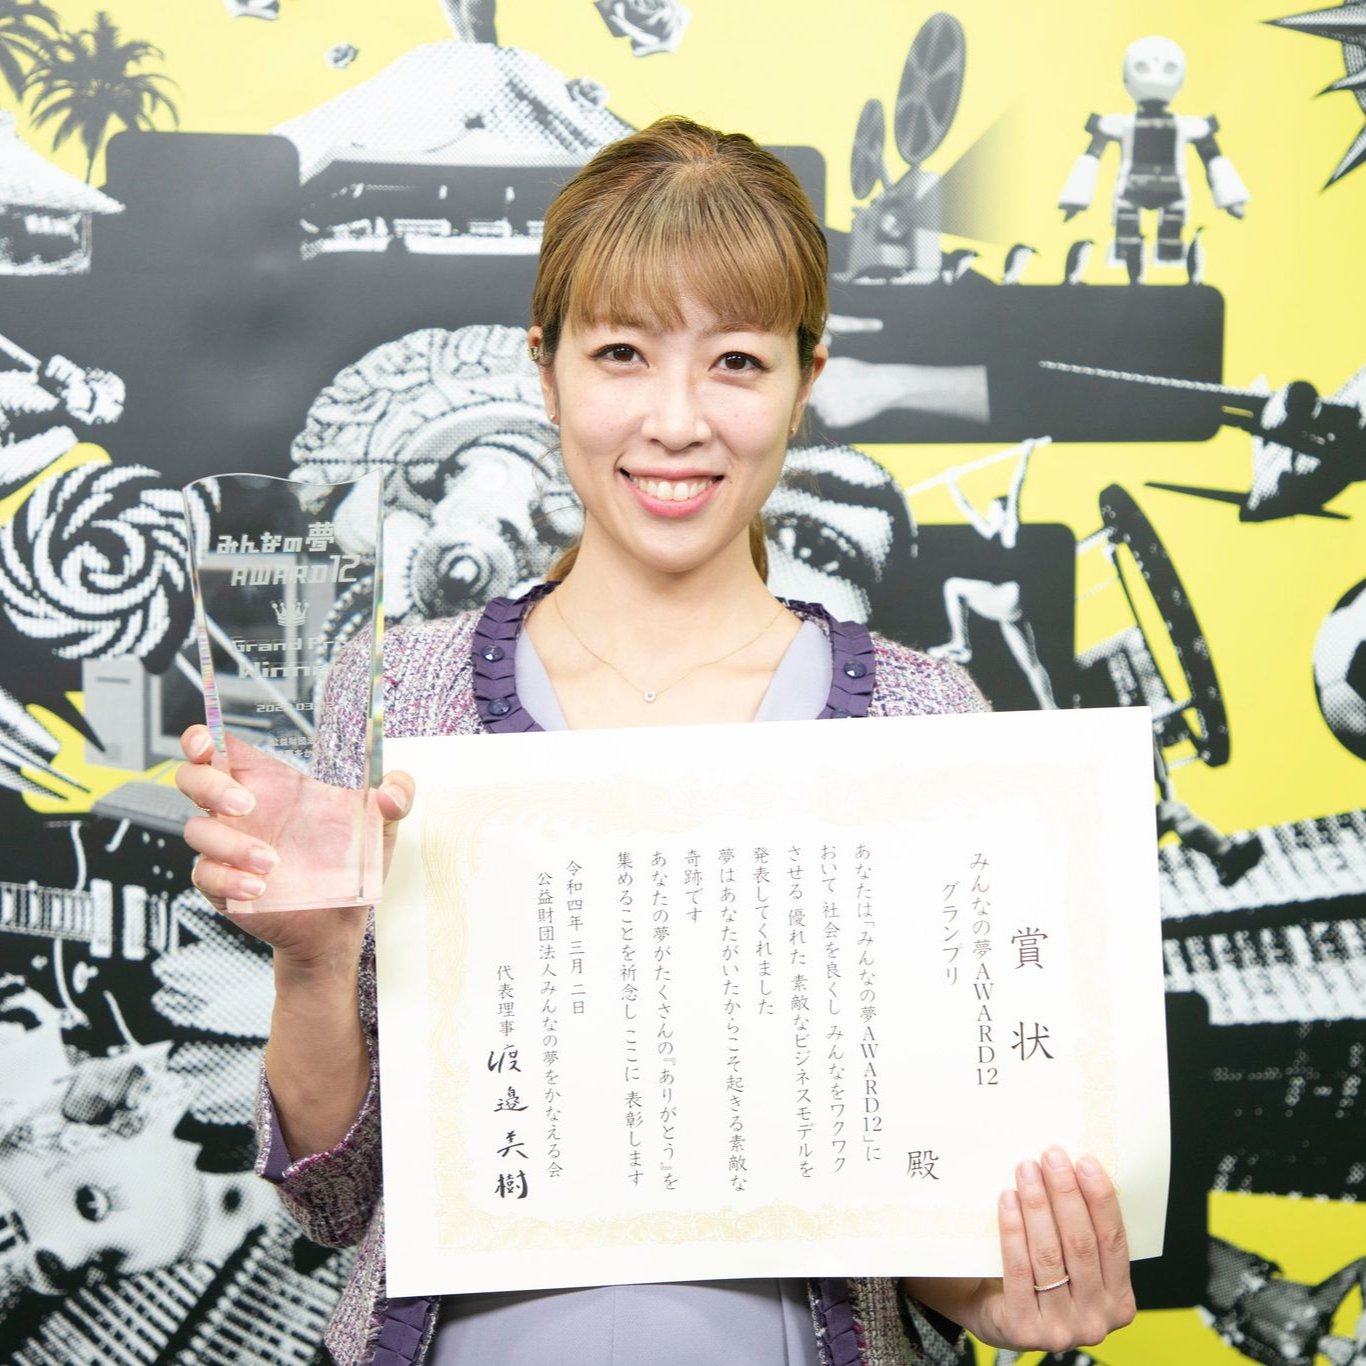 みんなの夢
AWARD12
Grand
賞状
みんなの夢AWARD12
グランプリ
殿
あなたは「みんなの夢AWARD12」に
おいて 社会を良くし みんなをワクワク
させる 優れた 素敵なビジネスモデルを
発表してくれました
夢はあなたがいたからこそ起きる素敵な
奇跡です
あなたの夢がたくさんの『ありがとう』を
集めることを祈念し ここに 表彰します
令和四年 三月 二日
公益財団法人みんなの夢をかなえる会
代表理事 渡邉美樹